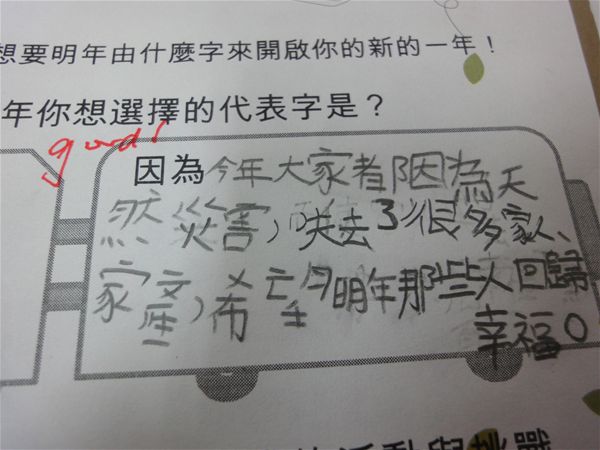 想要明年由什麼字來開啟你的新的一年！
年你想選擇的代表字是？
good!
因為今年大家都因為天
然災害，失去了很多家人、
家產，希望明年那些人回歸
幸福。
活動與挑戰